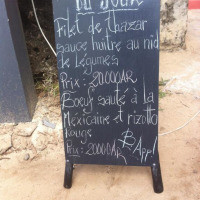 DU JOUR
Filet de Thazar
sauce huitre au nid
de légumes
Prix : 20000AR
Boeuf sauté à la
Mexicaine et rizotto
Rouge
Prix : 20000AR
B App!